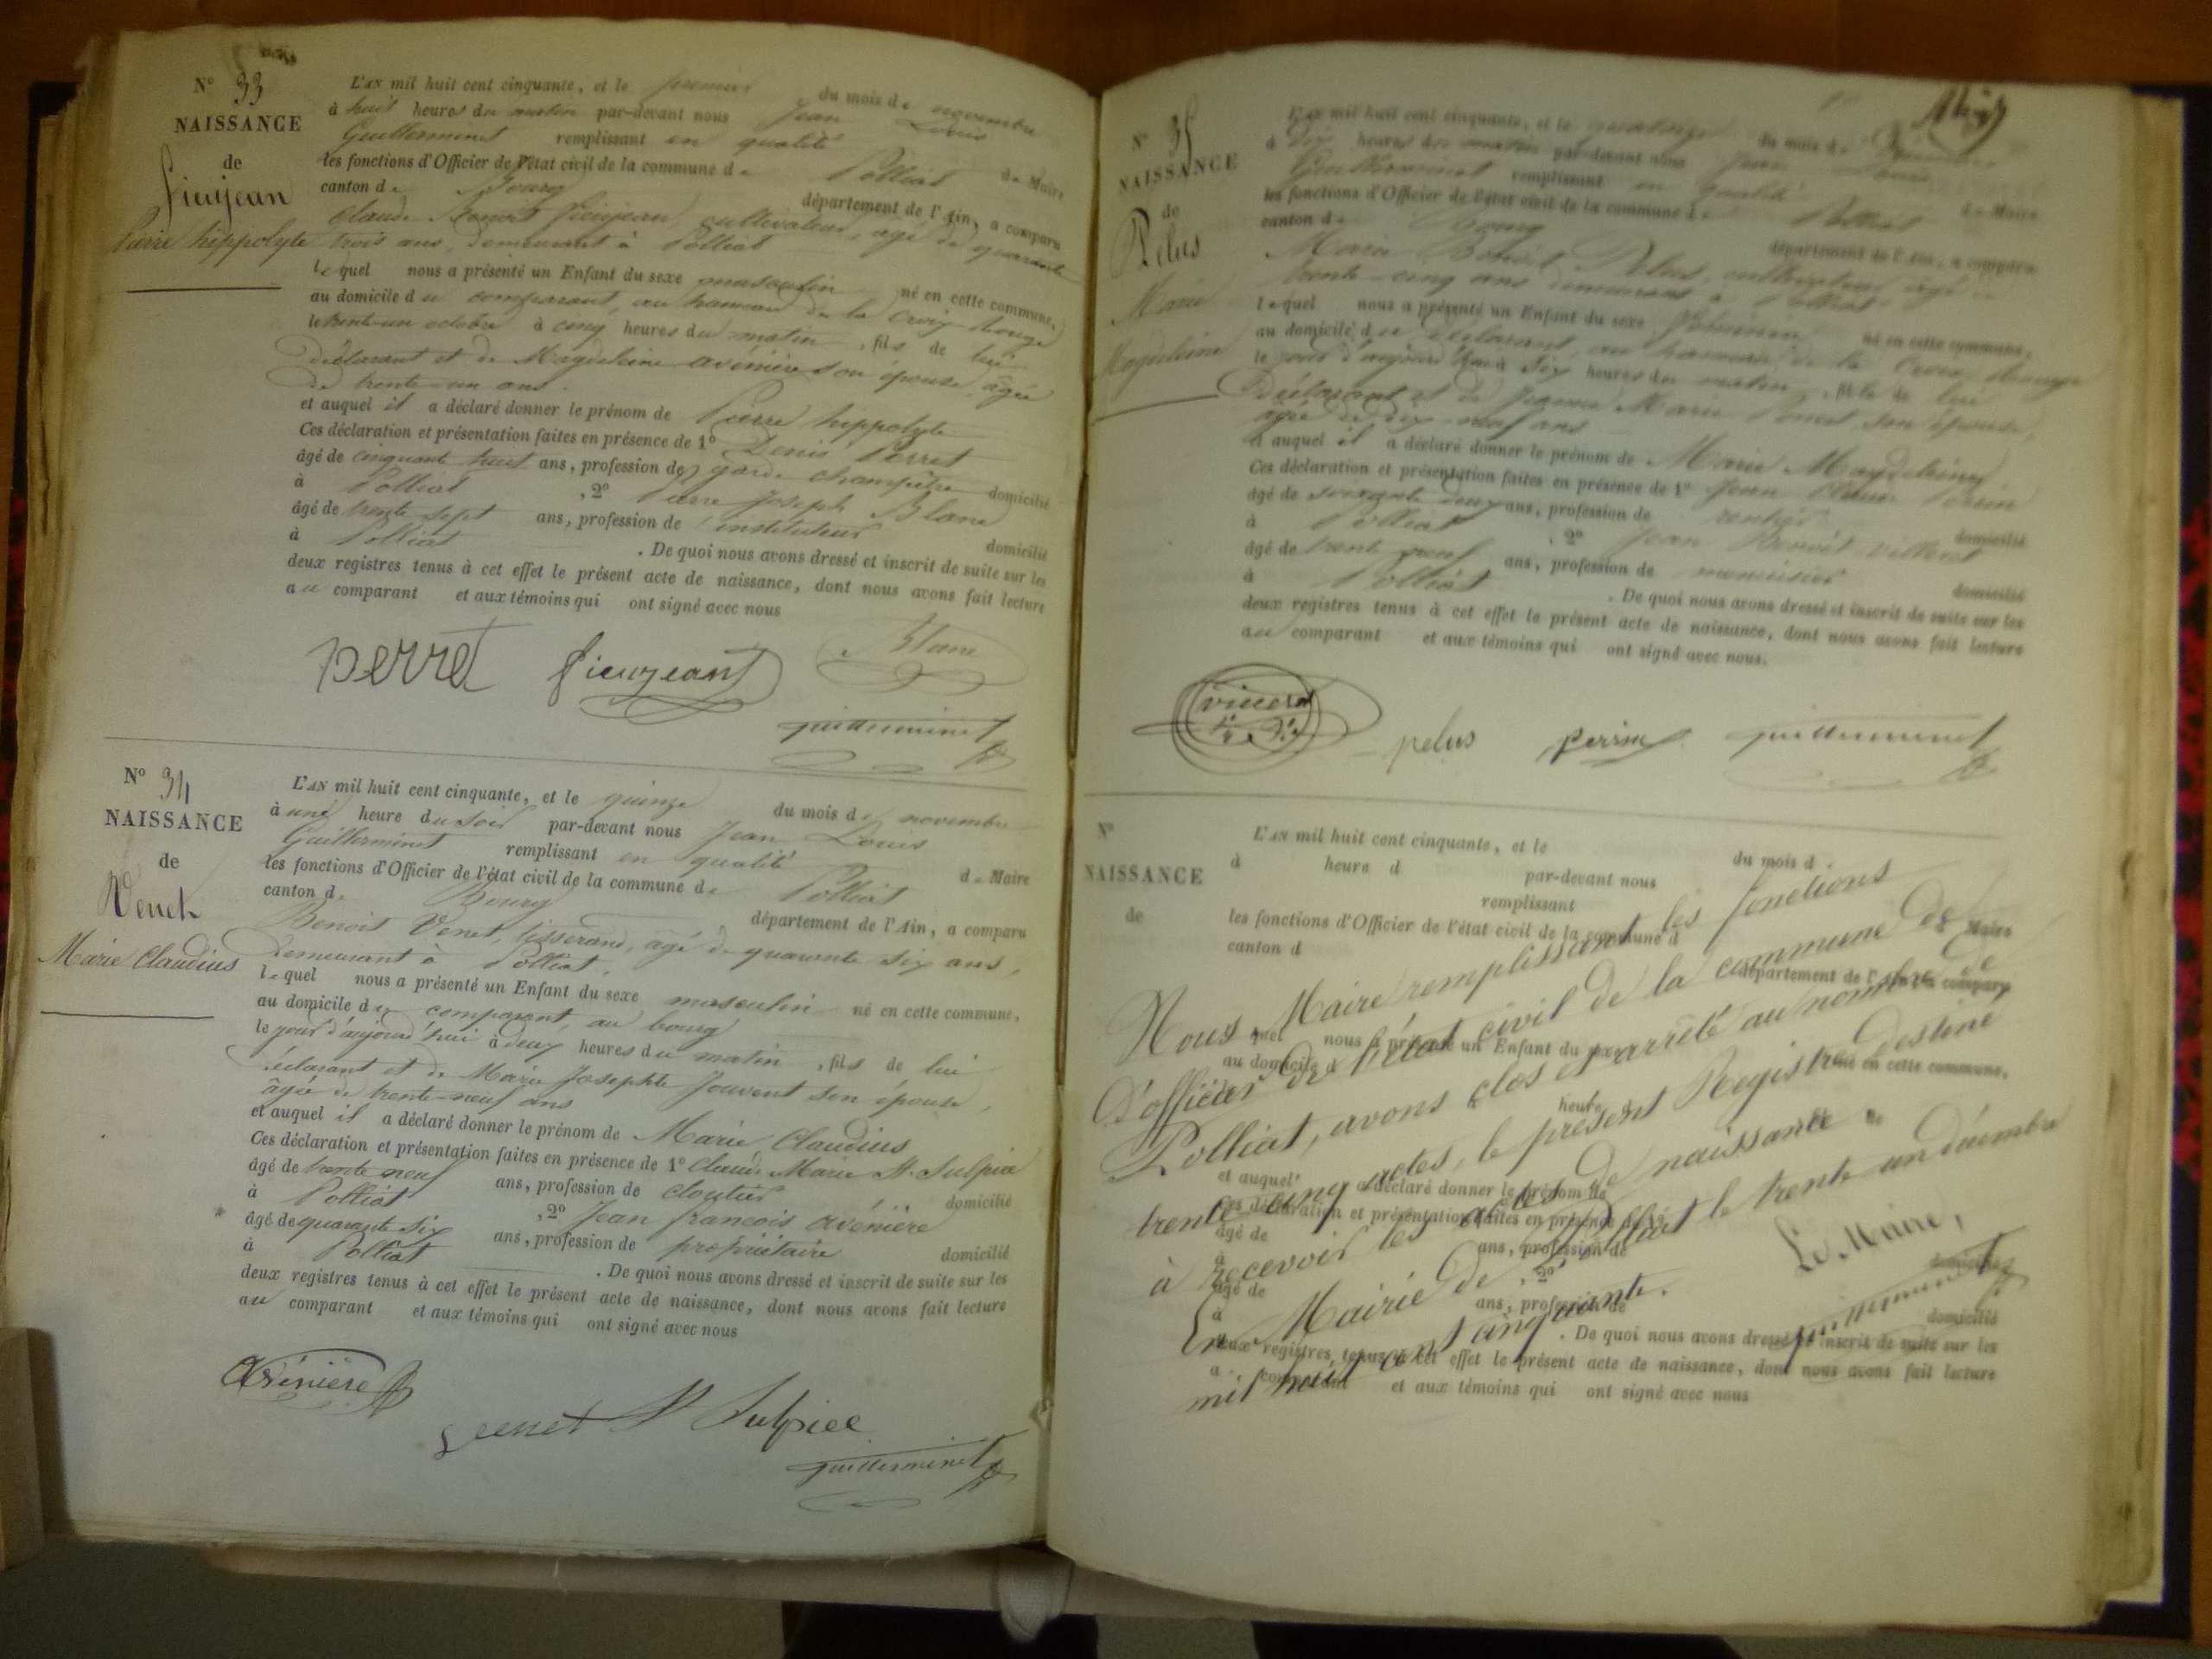 N° 33
NAISSANCE
de
fieujean
Pierre hippolyte
L'AN mil huit cent cinquante, et le premier du mois de novembre
à huit heures du matin par-devant nous Jean Louis
Guillerminet remplissant en qualité de Maire
les fonctions d'Officier de l'état civil de la commune de Polliat
canton de Bourg département de l'Ain, a comparu
Claude Benoit fieujean, cultivateur, agé de quarante
trois ans, demeurant à Polliat
lequel nous a présenté un Enfant du sexe masculin né en cette commune,
au domicile du comparant, au hameau de la Croix Rouge
le trente-un octobre à cinq heures du matin, fils de lui
déclarant et de Magdeleine avénière son épouse, âgée
de trente-un ans.
et auquel il a déclaré donner le prénom de Pierre hippolyte
Ces déclaration et présentation faites en présence de 1° Denis Perret
âgé de cinquante huit ans, profession de garde champêtre domicilié
à Polliat, 2° Pierre Joseph Blanc
âgé de trente sept ans, profession de instituteur domicilié
à Polliat. De quoi nous avons dressé et inscrit de suite sur les
deux registres tenus à cet effet le présent acte de naissance, dont nous avons fait lecture
au comparant et aux témoins qui ont signé avec nous
perret fieujeant Blanc
guillerminet
N° 34
NAISSANCE
de
Venet
Marie Claudius
L'AN mil huit cent cinquante, et le quinze du mois de novembre
à une heure du soir par-devant nous Jean Louis
Guillerminet remplissant en qualité de Maire
les fonctions d'Officier de l'état civil de la commune de Polliat
canton de Bourg département de l'Ain, a comparu
Benoit Venet, tisserand, âgé de quarante six ans,
demeurant à Polliat,
lequel nous a présenté un Enfant du sexe masculin né en cette commune,
au domicile du comparant, au bourg
le jour d'aujourd'hui à deux heures du matin, fils de lui
déclarant et de Marie Josephte Jouvent son épouse,
âgée de trente-neuf ans
et auquel il a déclaré donner le prénom de Marie Claudius
Ces déclaration et présentation faites en présence de 1° Claude Marie St. Sulpice
âgé de trente neuf ans, profession de cloutier domicilié
à Polliat, 2° Jean francois avénière
âgé de quarante six ans, profession de propriétaire domicilié
à Polliat. De quoi nous avons dressé et inscrit de suite sur les
deux registres tenus à cet effet le présent acte de naissance, dont nous avons fait lecture
au comparant et aux témoins qui ont signé avec nous
Avénière
venet St Sulpice
guillerminet
N° 35
NAISSANCE
de
Pelus
Marie
Magdeleine
L'AN mil huit cent cinquante, et le du mois de
à dix heures du matin par-devant nous Jean Louis
Guillerminet remplissant en qualité de Maire
les fonctions d'Officier de l'état civil de la commune de Polliat
canton de Bourg département de l'Ain, a comparu
Marie Benoit Pelus, cultivateur agé de
trente-cinq ans demeurant à Polliat
lequel nous a présenté un Enfant du sexe féminin né en cette commune,
au domicile du déclarant, au hameau de la Croix Rouge
le jour d'aujourd'hui à six heures du matin, fille de lui
déclarant et de Jeanne Marie Poncet son épouse,
agée de dix-neuf ans
et auquel il a déclaré donner le prénom de Marie Magdeleine
Ces déclaration et présentation faites en présence de 1° Jean Claude Perrin
âgé de soixante deux ans, profession de rentier domicilié
à Polliat, 2° Jean Benoit
âgé de trente neuf ans, profession de menuisier domicilié
à Polliat. De quoi nous avons dressé et inscrit de suite sur les
deux registres tenus à cet effet le présent acte de naissance, dont nous avons fait lecture
au comparant et aux témoins qui ont signé avec nous.
pelus perrin guillerminet
N°
NAISSANCE
de
L'AN mil huit cent cinquante, et le du mois d
à heure d par-devant nous
remplissant
les fonctions d'Officier de l'état civil de la commune d Maire
canton d
département de l'Ain, a comparu
Nous Maire remplissant les fonctions
D'officier de l'état civil de la commune de
Polliat, avons clos et arrêté au nombre de
trente cinq actes, le présent Registre destiné
à recevoir les actes de naissance
En Mairie de Polliat le trente un décembre
mil huit cent cinquante.
Le Maire,
guillerminet
quel nous a présenté un Enfant du sexe né en cette commune,
au domicile d
heure
et auquel a déclaré donner le prénom de
Ces déclaration et présentation faites en présence de 1°
âgé de ans, profession de domicilié
à , 2°
âgé de ans, profession de domicilié
à . De quoi nous avons dressé et inscrit de suite sur les
deux registres tenus à cet effet le présent acte de naissance, dont nous avons fait lecture
a comparant et aux témoins qui ont signé avec nous